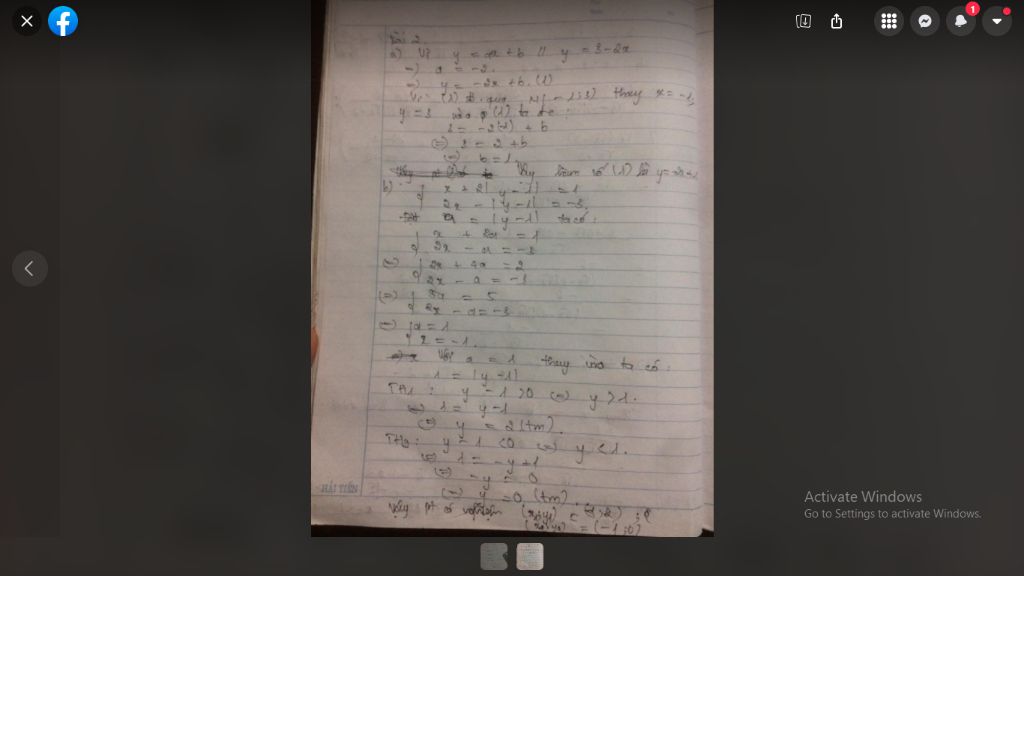 1
Bài 2.
a) Vì y = ax + b // y = 3 - 2x
=> a = -2.
=> y = -2x + b. (1)
Vì (1) đi qua N(-1;3) thay x = -1,
y = 3 vào (1) ta đc:
3 = -2(-1) + b
<=> 3 = 2 + b
<=> b = 1.
Vậy hàm số (1) là
b) x + 2|y - 1| = 1
2x - |y - 1| = -3.
a = |y - 1| ta có:
x + 2a = 1
2x - a = -3
<=> 2x + 4a = 2
2x - a = -3
<=> 5a = 5
2x - a = -3
<=> a = 1
x = -1.
Với a = 1 thay vào ta có:
1 = |y - 1|
TH1: y - 1 > 0 <=> y > 1.
<=> 1 = y - 1
<=> y = 2 (tm).
TH2: y - 1 < 0 <=> y < 1.
<=> 1 = -y + 1
<=> -y = 0
<=> y = 0 (tm)
HẢI TIẾN
Vậy pt có nghiệm
= (-1; 0)
Activate Windows
Go to Settings to activate Windows.